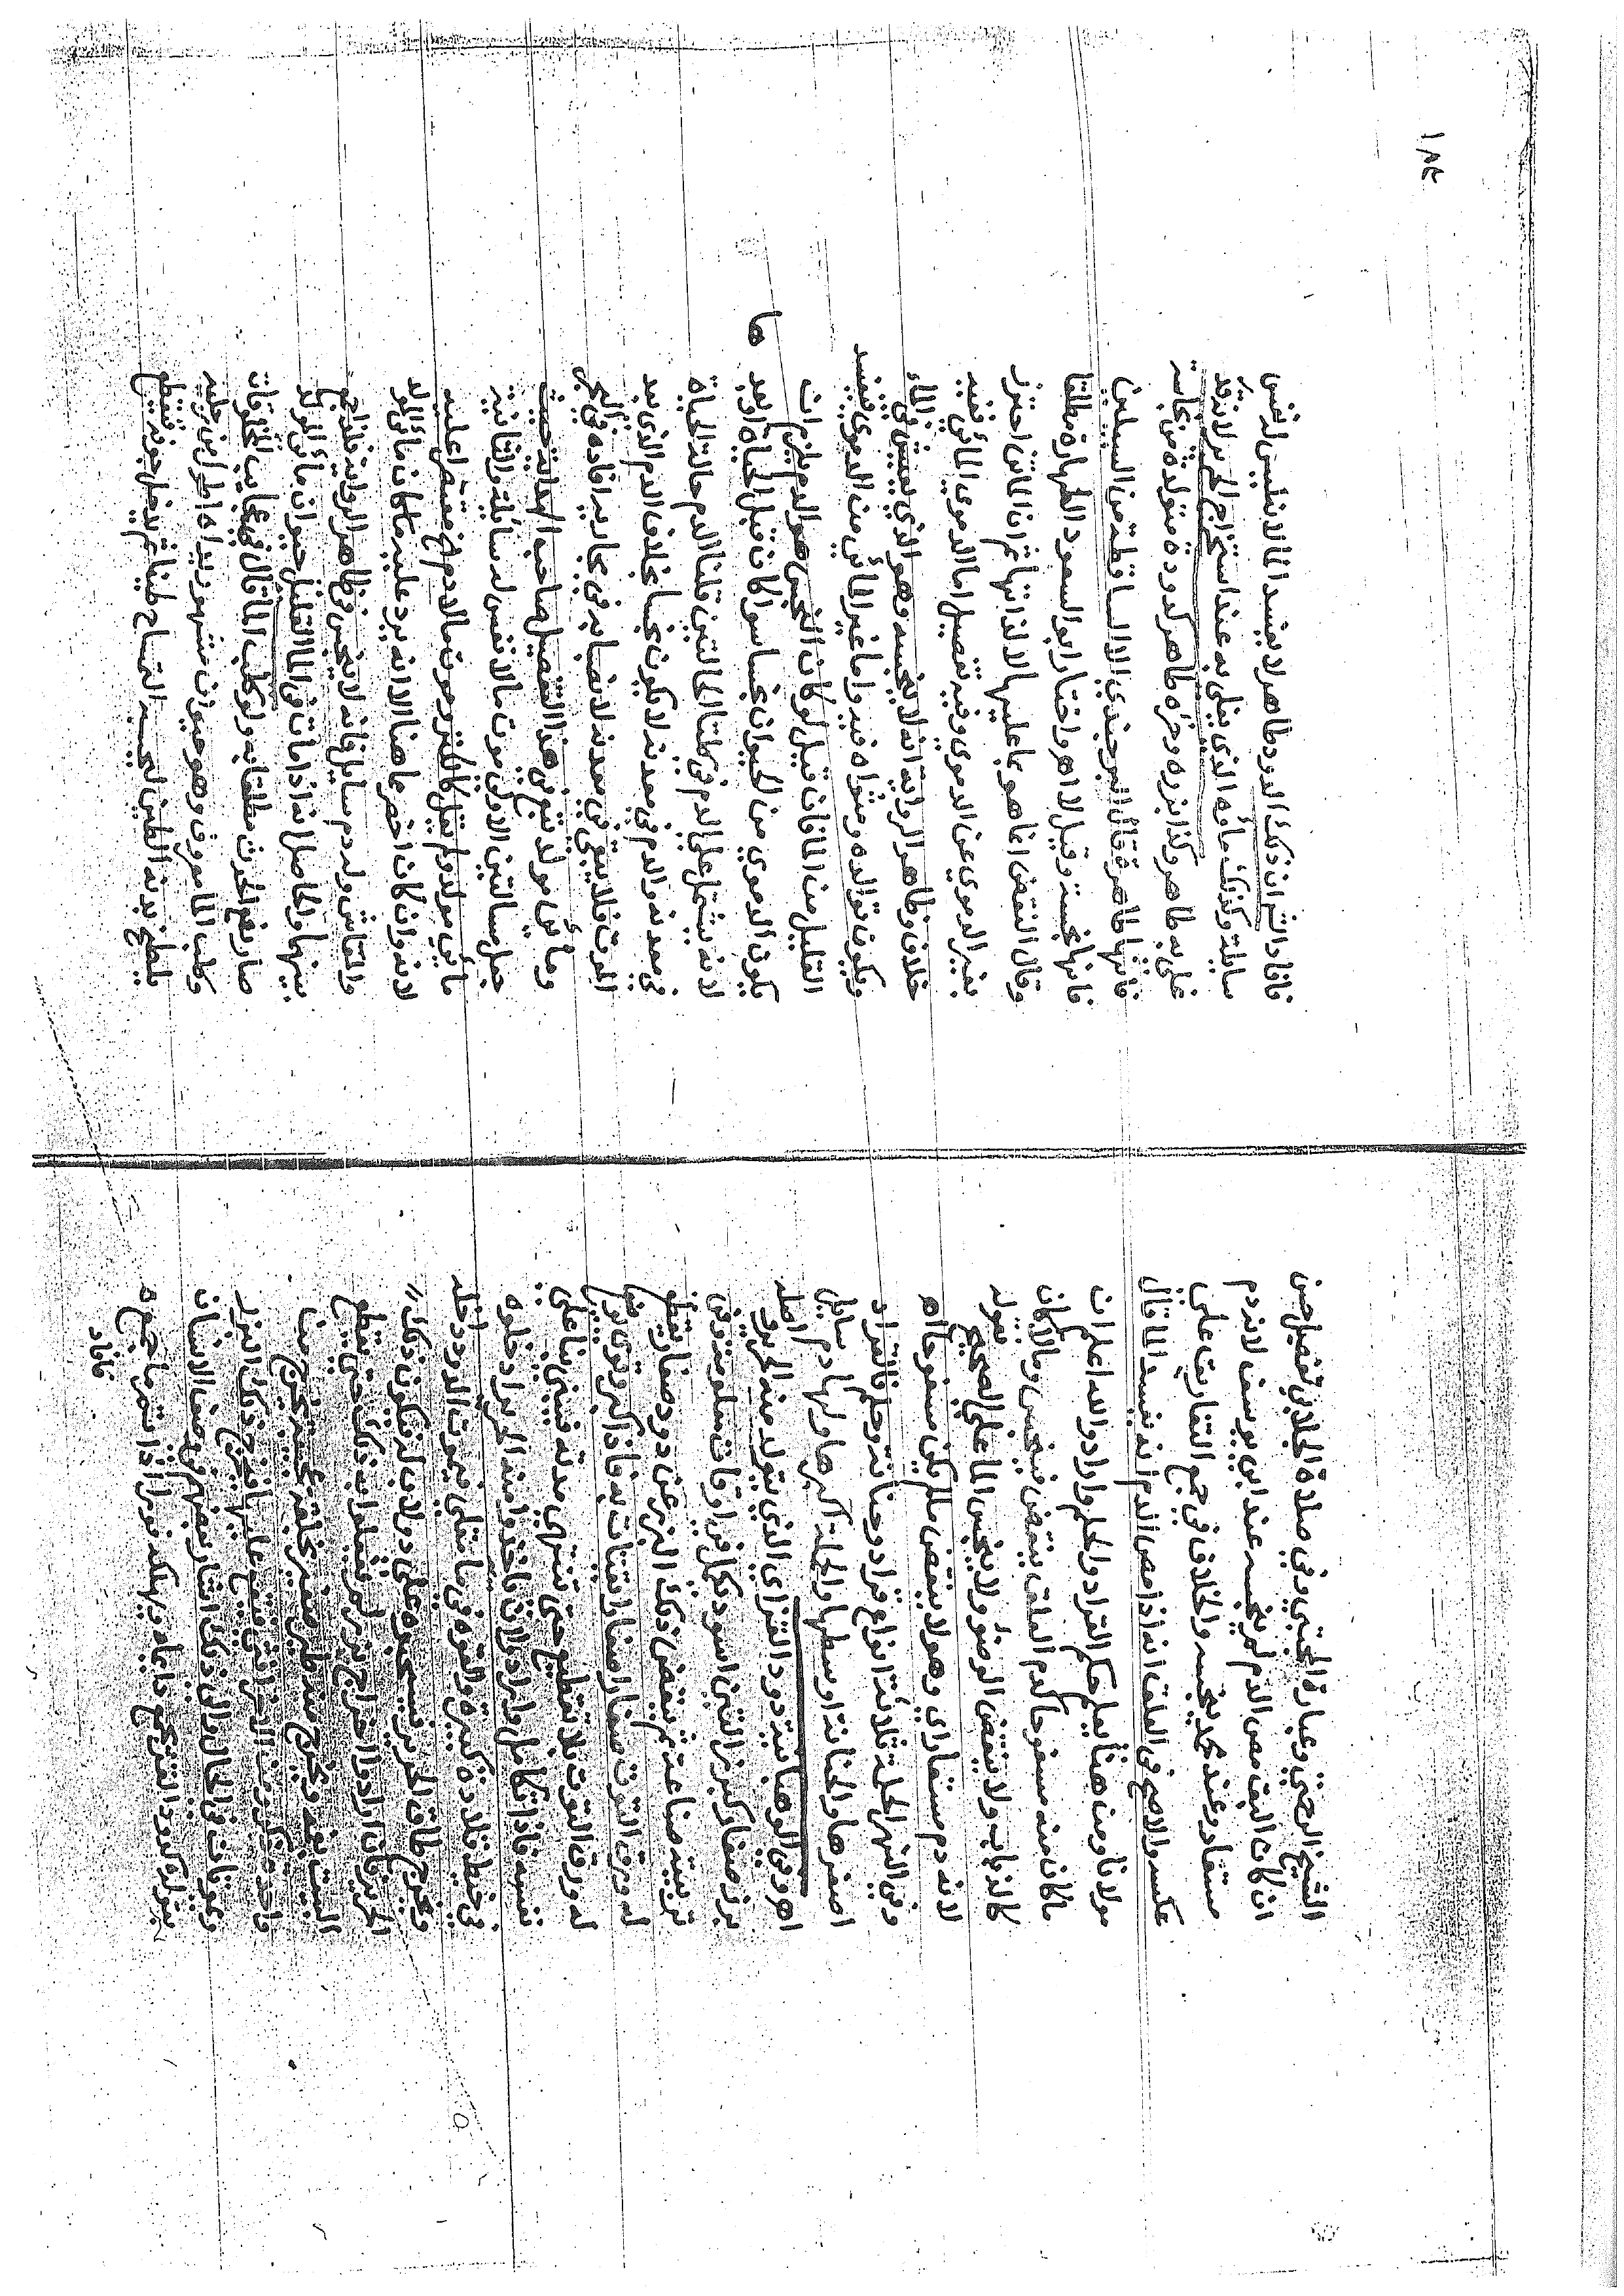 الشيخ الرحمتي وعبارة المجتبي وفي صلاة الجلابي تفصيل حسن
ان كان البق مص الدم لم ينجسه عند ابي يوسف لانه دم
مستعار وعند محمد ينجسه والخلاف في جمع التفاريق على
عكسه والاصح في العلق انه اذا مص الدم انه يفسد الماء قال
مولانا ومن هنا يعلم حكم القراد والحلم واراد والله اعلم ان
ماكان منه مسفوحا كدم العلق ينقض فينجس والا كان
كالذباب ولا ينقض الوضوء ولا ينجس الماء على الصحيح بقوله
لانه دم مستعار اي وهو لا ينقض ما لم يكن مسفوحا اه
وفي النهر الحلمة ثلاثة انواع قراد وحنانة وحلم فالقراد
اصغرها والحنانة اوسطها والحلمة اكبرها ولها دم سايل
اهـ وفي الوهبانية دود القز اي الذي يتولد منه الحرير واصله
بزر صغار كبزر التين اسود يحل في اوقات معلومة وفي
تربيته صناعة ثم ينقض ذلك البزر عن دود صغار يقطع
له ورق التوت صغارا صغارا يقتات به فاذا كبر وقوي يوضع
له ورق التوت بلا تقطيع حتى تنتهي مدته فيبني بناء على
نفسه فاذا تكامل وارادوا ان ياخذوا منه الحرير
في خيط قلادة كبيرة والقوه في ماء يغلي فيموت الدود داخله
ويخرج طاق الحرير فيسحبوه على دولاب له فيكون ذلك
الحرير فان ارادوا اخراج بزر لم يفعلوا به ذلك حتى يقطع
البيت بفمه ويخرج منه طير صغير بخلقة عجيبة تخرج
واحدة ذكر ومن اخرى فيقع عليها فيخرج ذلك البزر
ويموتان في الحال والى ذلك اشار بعضهم في وصف الانسان
يقول كدود القز يجمع دايما ويهلك غما اذا ما جمعه
فافاد
١٨٤
فافادات ان ذلك الدود طاهر لا يفسد الماء لانه ليس له نفس
سايلة وكذلك ماؤه الذي يغلي به عند استخراج الحرير لانه قد
غلي به طاهر وكذا بزره وخرؤه طاهر كدودة متولدة من نجاسة
فانها طاهرة قال ابو جندي الا الساقطة من السبيلين
فانها نجسة وقيل لا اهـ واختار ابو السعود الطهارة مطلقا
وقال النقض انما هو بما عليها لا لذاتها ثم ان الماتن احترز
بغير الدموي عن الدموي وفيه تفصيل اما الدموي المائي ففيه
خلاف وظاهر الرواية انه لا ينجسه وهو الذي يعيش في الماء
ويكون توالده ومثواه فيه واما غير المائي من الدموي فيفسد
القليل من الماء فان قيل لو كان النجس هو الدم يلزم ان
يكون الدموي من الحيوان نجسا سوا كان قبل الحياة او بعدها
لانه يشتمل على الدم في كلتا الحالتين قلنا الدم حالة الحياة
في معدنه والدم في معدنه لا يكون نجسا بخلاف الدم الذي بعد
الموت فلا يبقى في معدنه لانصبابه عن مجاريه افاده في البحر
ومائي مولد تبع في هذا التفصيل صاحب الهداية حيث
جعل مسألتين الاولى موت ما لا نفس له سائلة والثانية
مائي مولد ولم يقل كالكنز وموت ما لا دم له مقتصرا عليه
لانه وان كان اخصر مما هنا الا انه يرد عليه ما كان مائي المولد
والمعاش وله دم سايل فانه لا ينجس في ظاهر الرواية فلذا جمع
بينهما والحاصل انه اذا مات في الماء القليل حيوان مائي المولد
صار نجسا عند مطلقا به ولو كلب الماء قال في عجايب المخلوقات
وكلب الماء معروف وهو حيوان مشهور يداه اطول من رجليه
يلطخ بدنه بالطين ليحسبه التمساح طينا ثم يدخل جوفه فيقطع